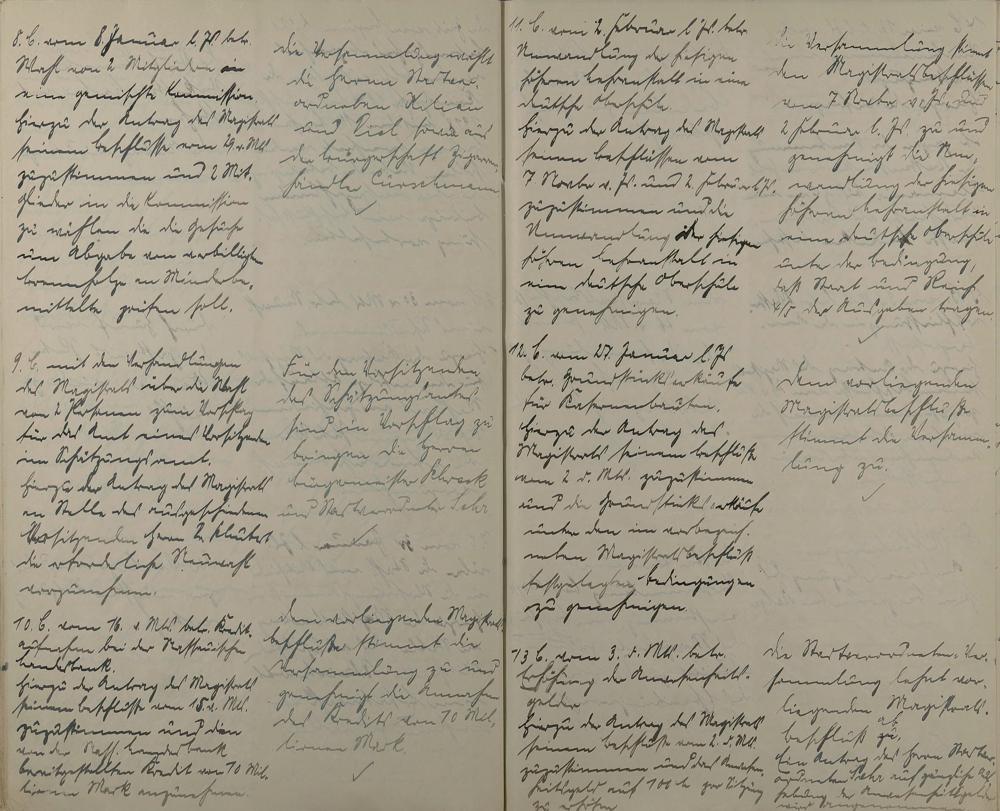 8. B. vom 8 Januar l. Js. betr.
Wahl von 2 Mitgliedern in
eine gemischte Kommission.
Hierzu der Antrag des Magistrats
seinem Beschlusse vom 29. v. Mts
zuzustimmen und 2 Mit-
glieder in die Kommission
zu wählen die die Gesuche
um Abgabe von verbilligten
Brennholze an Minderbe-
mittelte prüfen soll.
die Versammlung wählt
die Herrn Stadtver-
ordneten Kilian
und Diel sowie aus
der Bürgerschaft Zigarren-
händler Cürschmann
9. B. mit den Verhandlungen
des Magistrats über die Wahl
von 2 Personen zum Vorschlag
für das Amt eines Vorsitzenden
im Schätzungsamt.
Hierzu der Antrag des Magistrats
an Stelle des ausgeschiedenen
Vorsitzenden Herrn
die erforderliche Neuwahl
vorzunehmen.
Für den Vorsitzenden
des Schätzungsamtes
sind in Vorschlag zu
bringen die Herren
Bürgermeister
und Stadtverordneter Sehr
10. B. vom 16. v. Mts betr. Kredit-
aufnahme bei der Nassauischen
Landesbank.
Hierzu der Antrag des Magistrats
seinem Beschlusse vom 15. v. Mts.
zuzustimmen und den
von der Nass. Landesbank
bereitgestellten Kredit von 10 Mil-
lionen Mark anzunehmen.
dem vorliegenden Magistrats-
beschlusse stimmt die
Versammlung zu und
genehmigt die Annahme
des Kredits von 10 Mil-
lionen Mark
11. B. vom 2. Februar l. Js. betr.
Umwandlung der hiesigen
höheren Lehranstalt in eine
deutsche Oberschule.
Hierzu der Antrag des Magistrats
seinen Beschlüssen vom
7 Novbr v. Js. und 2. Februar l. Js.
zuzustimmen und die
Umwandlung der hiesigen
höheren Lehranstalt in
eine deutsche Oberschule
zu genehmigen.
die Versammlung stimmt
den Magistratsbeschlüssen
vom 7 Novbr v. Js. und
2 Februar l. Js. zu und
genehmigt die Um-
wandlung der hiesigen
höheren Lehranstalt in
eine deutsche Oberschule
unter der Bedingung,
daß Staat und Reich
4/5 der Ausgaben tragen
12. B. vom 27. Januar l. Js
betr. Grundstücksverkäufe
für Kasernenbauten.
Hierzu der Antrag des
Magistrats seinem Beschlusse
vom 2 d. Mts. zuzustimmen
und die Grundstücksverkäufe
unter den im vorbezeich-
neten Magistratsbeschluß
festgelegten Bedingungen
zu genehmigen.
dem vorliegenden
Magistratsbeschlusse
stimmt die Versamm-
lung zu.
13 B. vom 3. d. Mts. betr.
Erhöhung der Anwesenheits-
gelder
Hierzu der Antrag des Magistrats
seinem Beschlusse vom 2. d. Mts.
zuzustimmen und das Anwesen-
heitsgeld auf 100 M per Sitzung
zu erhöhen
die Stadtverordneten-Ver-
sammlung lehnt vor-
liegenden Magistrats-
beschluß ab.
Ein Antrag des Herrn Stadtver-
ordneten Sehr auf gänzliche Auf-
hebung der Anwesenheitsgelder
wird angenommen